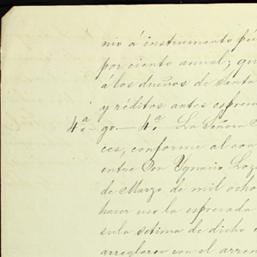 nio á instrumento pú
por ciento anual; qu
á los dueños de Santa
y réditos antes espre
4ª— go.— 4º. La Señora
ces, conforme al con
entre Don Ygnacio Loz
de Marzo de mil ocho
hacer uso la espresada
sula setima de dicho
arreglaron con el arren